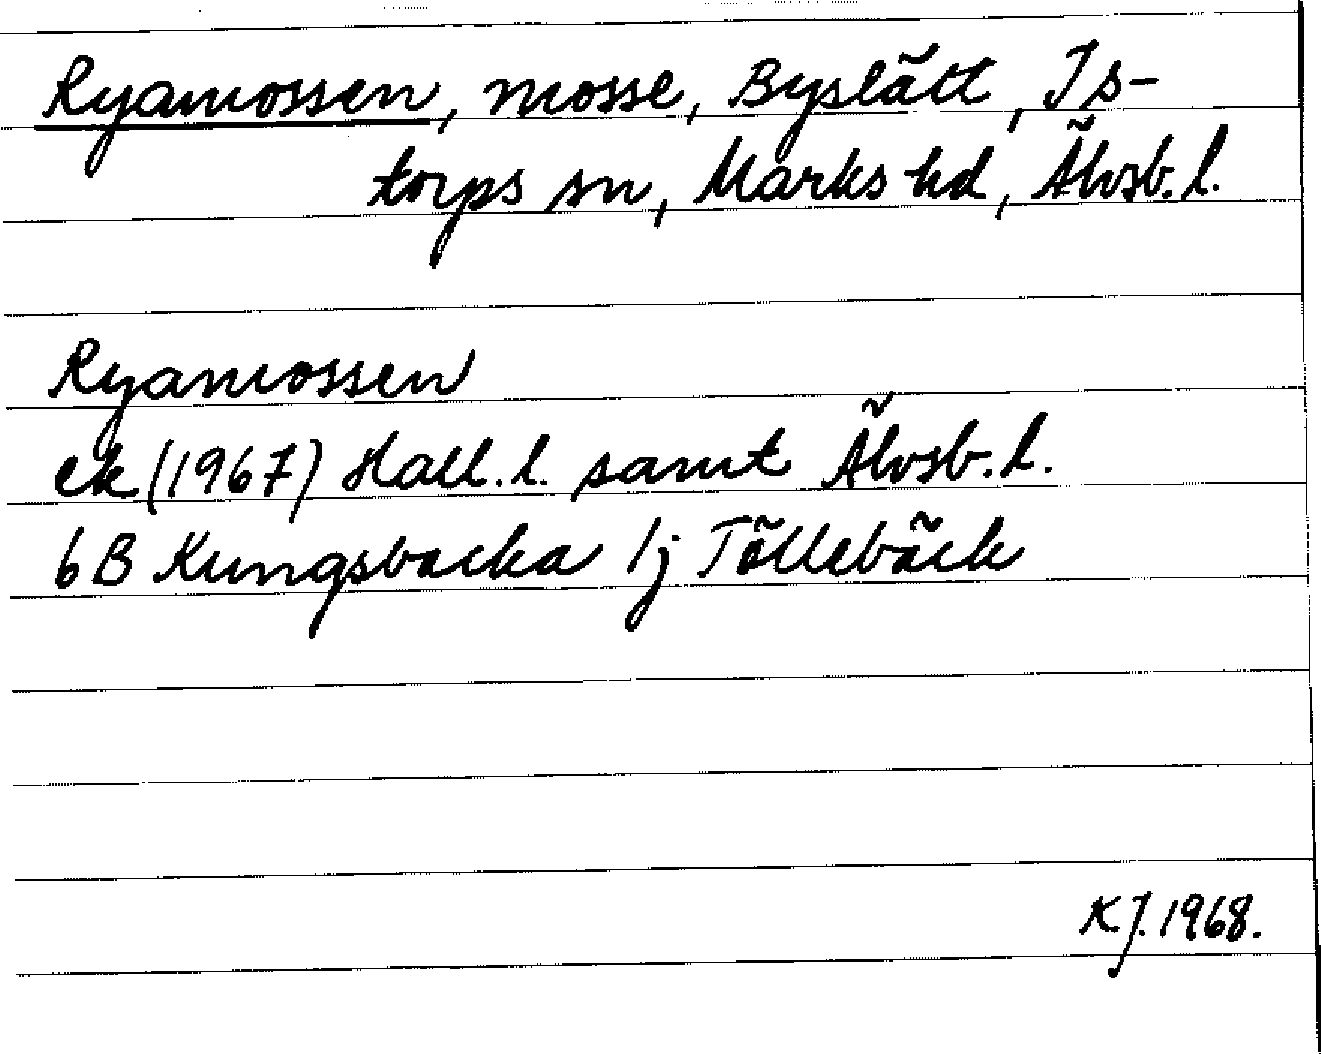 Ryamossen, mosse, Byslätt, Is-
torps sn, Marks hd, Älvsb. l.
Ryamossen
ek (1967) Hall. l. samt Älvsb. l.
6B Kungsbacka 1j Töllebäck
K.J. 1968.